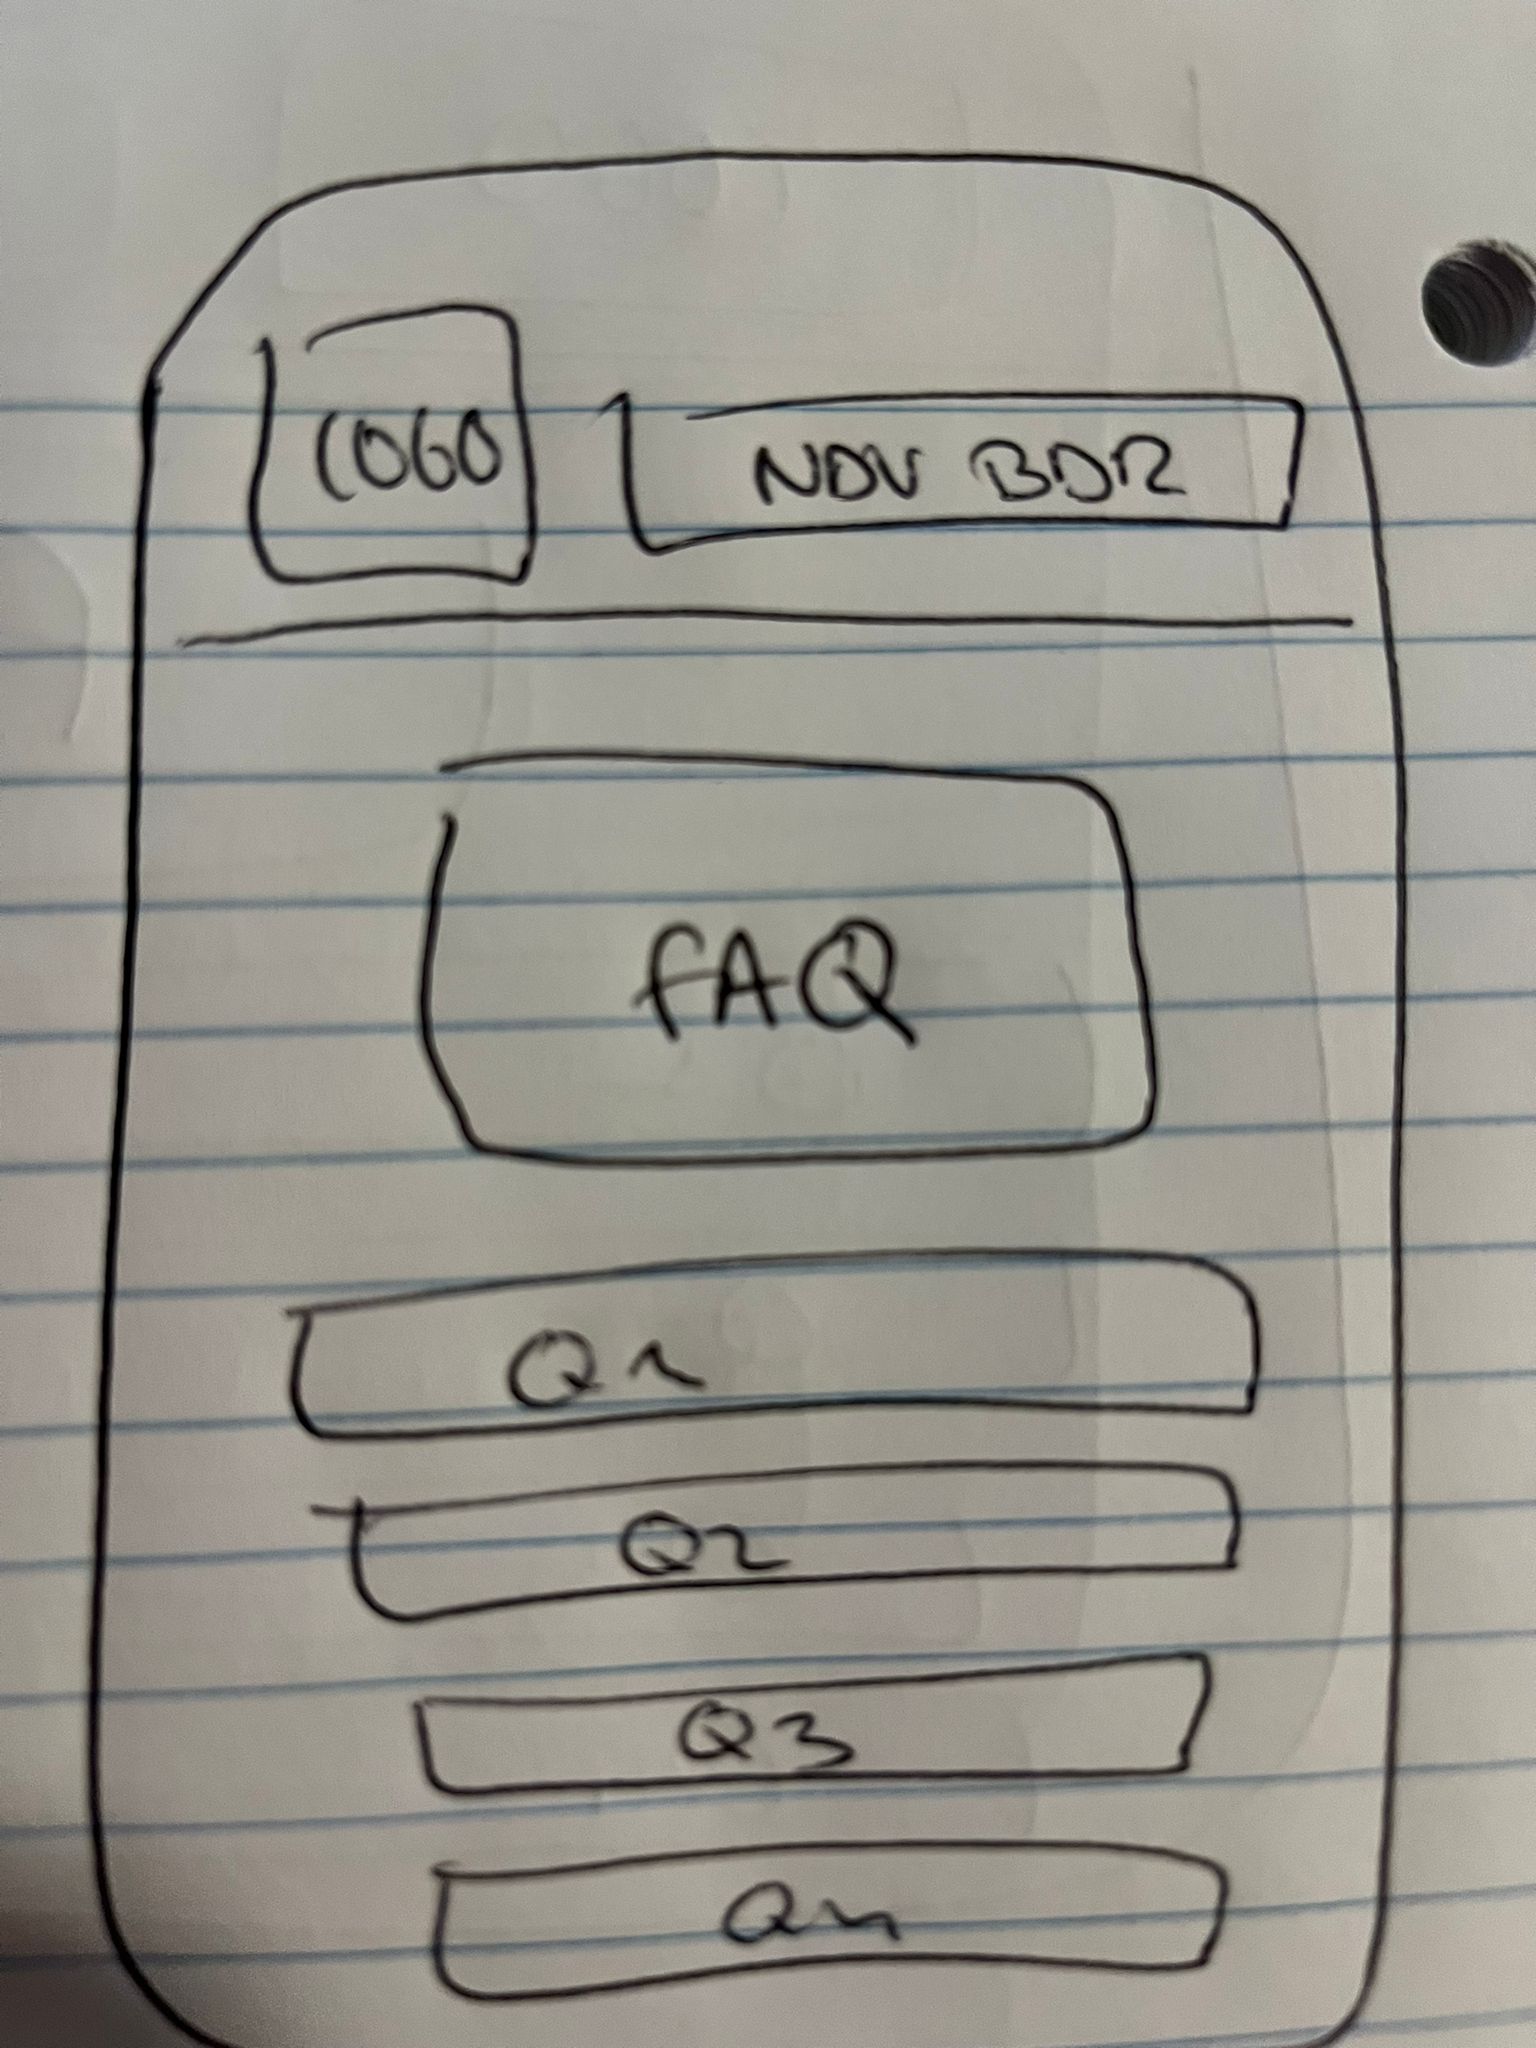 LOGO
NAV BAR
FAQ
Q1
Q2
Q3
Qn